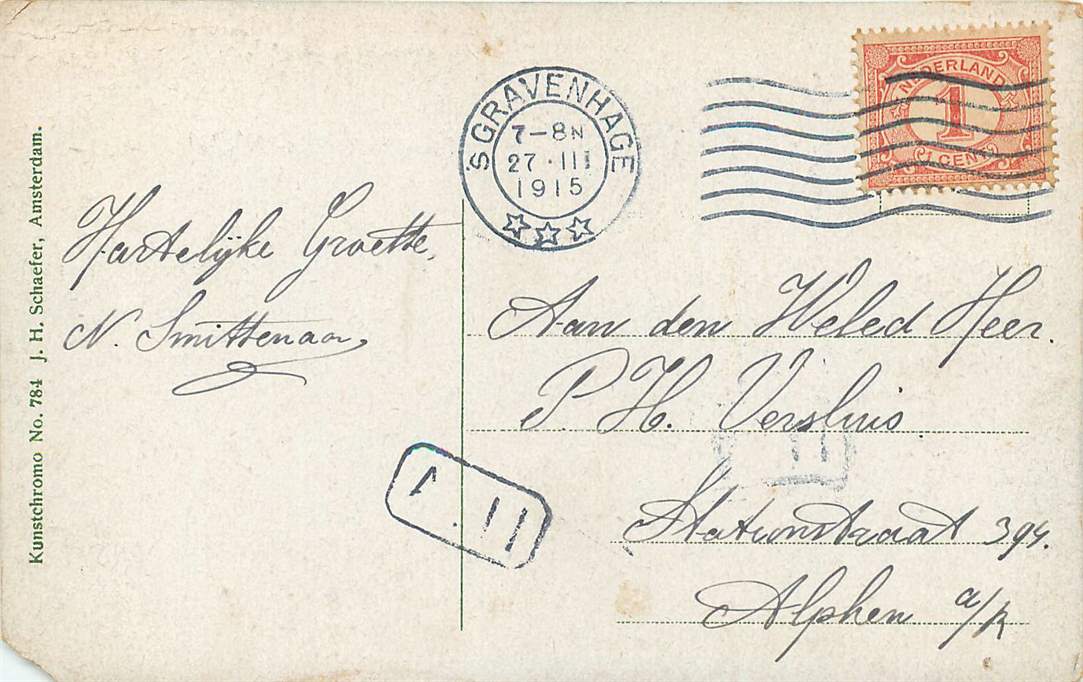 Kunstchromo No. 784 J. H. Schaefer, Amsterdam.
'S GRAVENHAGE
7-8N
27·III
1915
NEDERLAND
1
1 CENT
Hartelijke Groette,
N. Smittenaar,
Aan den Weled Heer.
P. H. Versluis
Stationstraat 394.
Alphen a/R
11